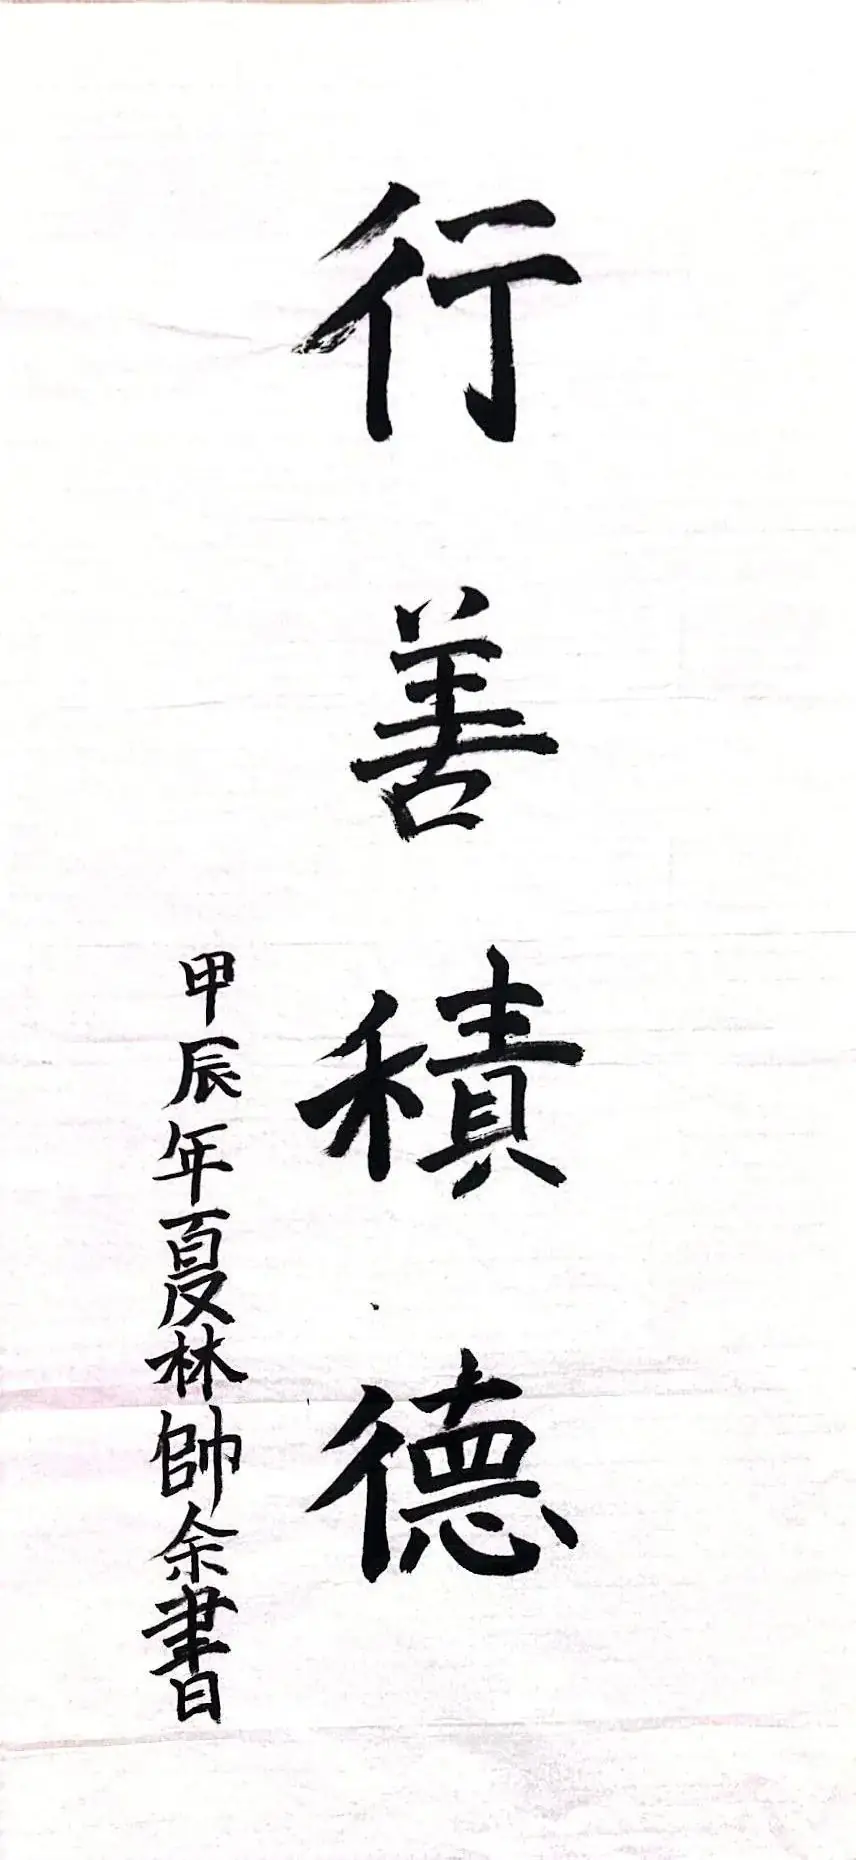 行善積德
甲辰年夏林帥余書